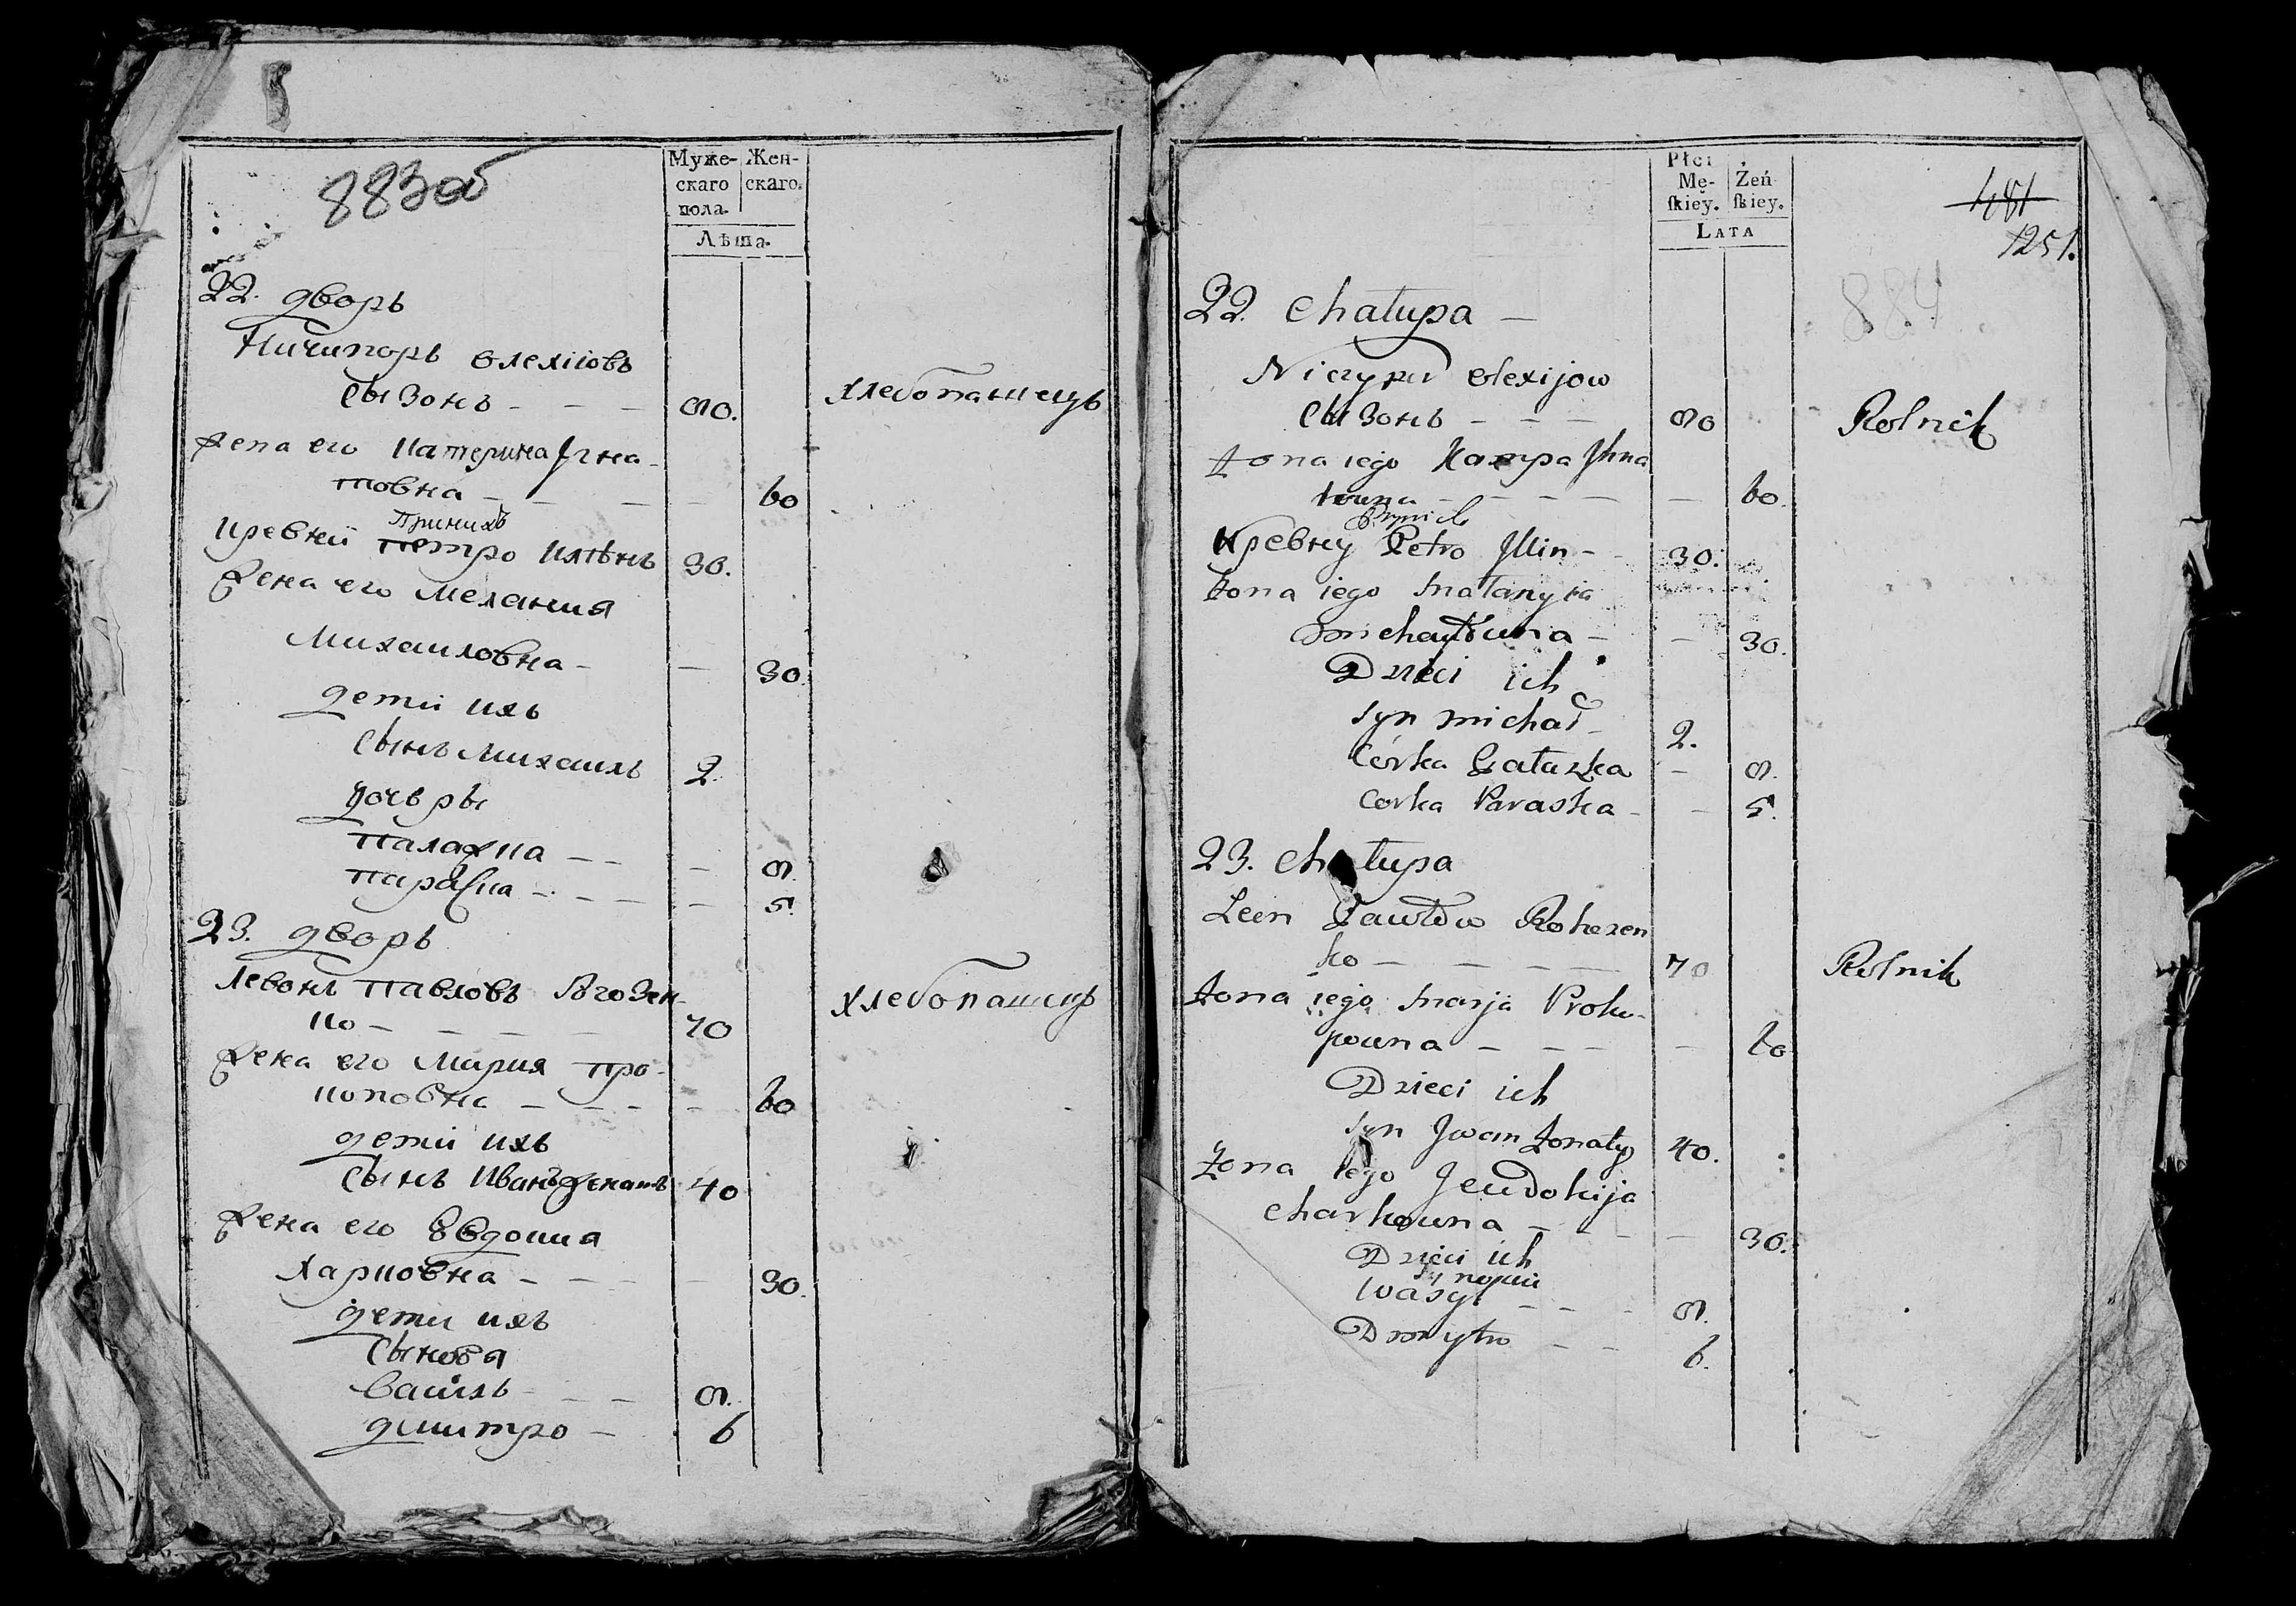 883об
Муже-
скаго
пола.
Жен-
скаго.
Лѣта.
22. дворъ
Ничипоръ Олехіовъ
Сызонъ - - -
80.
хлебопашецъ
жена его Катерина Гна-
товна - - -
60
Приникъ
Кревній Петро Илѣнъ
30.
жена его Мелания
Михаиловна -
30.
дети ихъ
Сынъ Михаилъ
2.
дочѣры
Палажка - -
8.
Параска - - -
5.
23. дворъ
Левонъ Павловъ Рогозен-
ко - - - -
70
хлебопашецъ
жена его Мария Про-
коповна - - -
60
дети ихъ
Сынъ Иванъ женатъ
40
жена его Евдокия
Харковна - - -
30.
дети ихъ
Сыновя
Василь - - -
8.
дмитро -
6
Płci
Mę-
ſkiey.
Żeń
ſkiey.
LATA
1251.
884
22. Chałupa -
Niczypor Olexijow
Сызонъ - - -
80
Rolnik
Żona iego Катра Ihna
towna - - - -
60.
Кревny Petro Illin -
30.
Żona iego Małanyia
Michayłowna -
30.
Dzieci ich
Syn Michał
2.
Córka Pałazka -
8.
Corka Paraska -
5.
23. Chałupa
Leon Pawłow Rohozen
ko - - - -
70
Rolnik
Żona iego Marja Proko-
powna - - -
60
Dzieci ich
Syn Jwan Żonaty
40.
Żona iego Jewdokija
Charkowna - - -
30.
Dzieci ich
Wasyl - - -
8.
Dmytro - -
6.